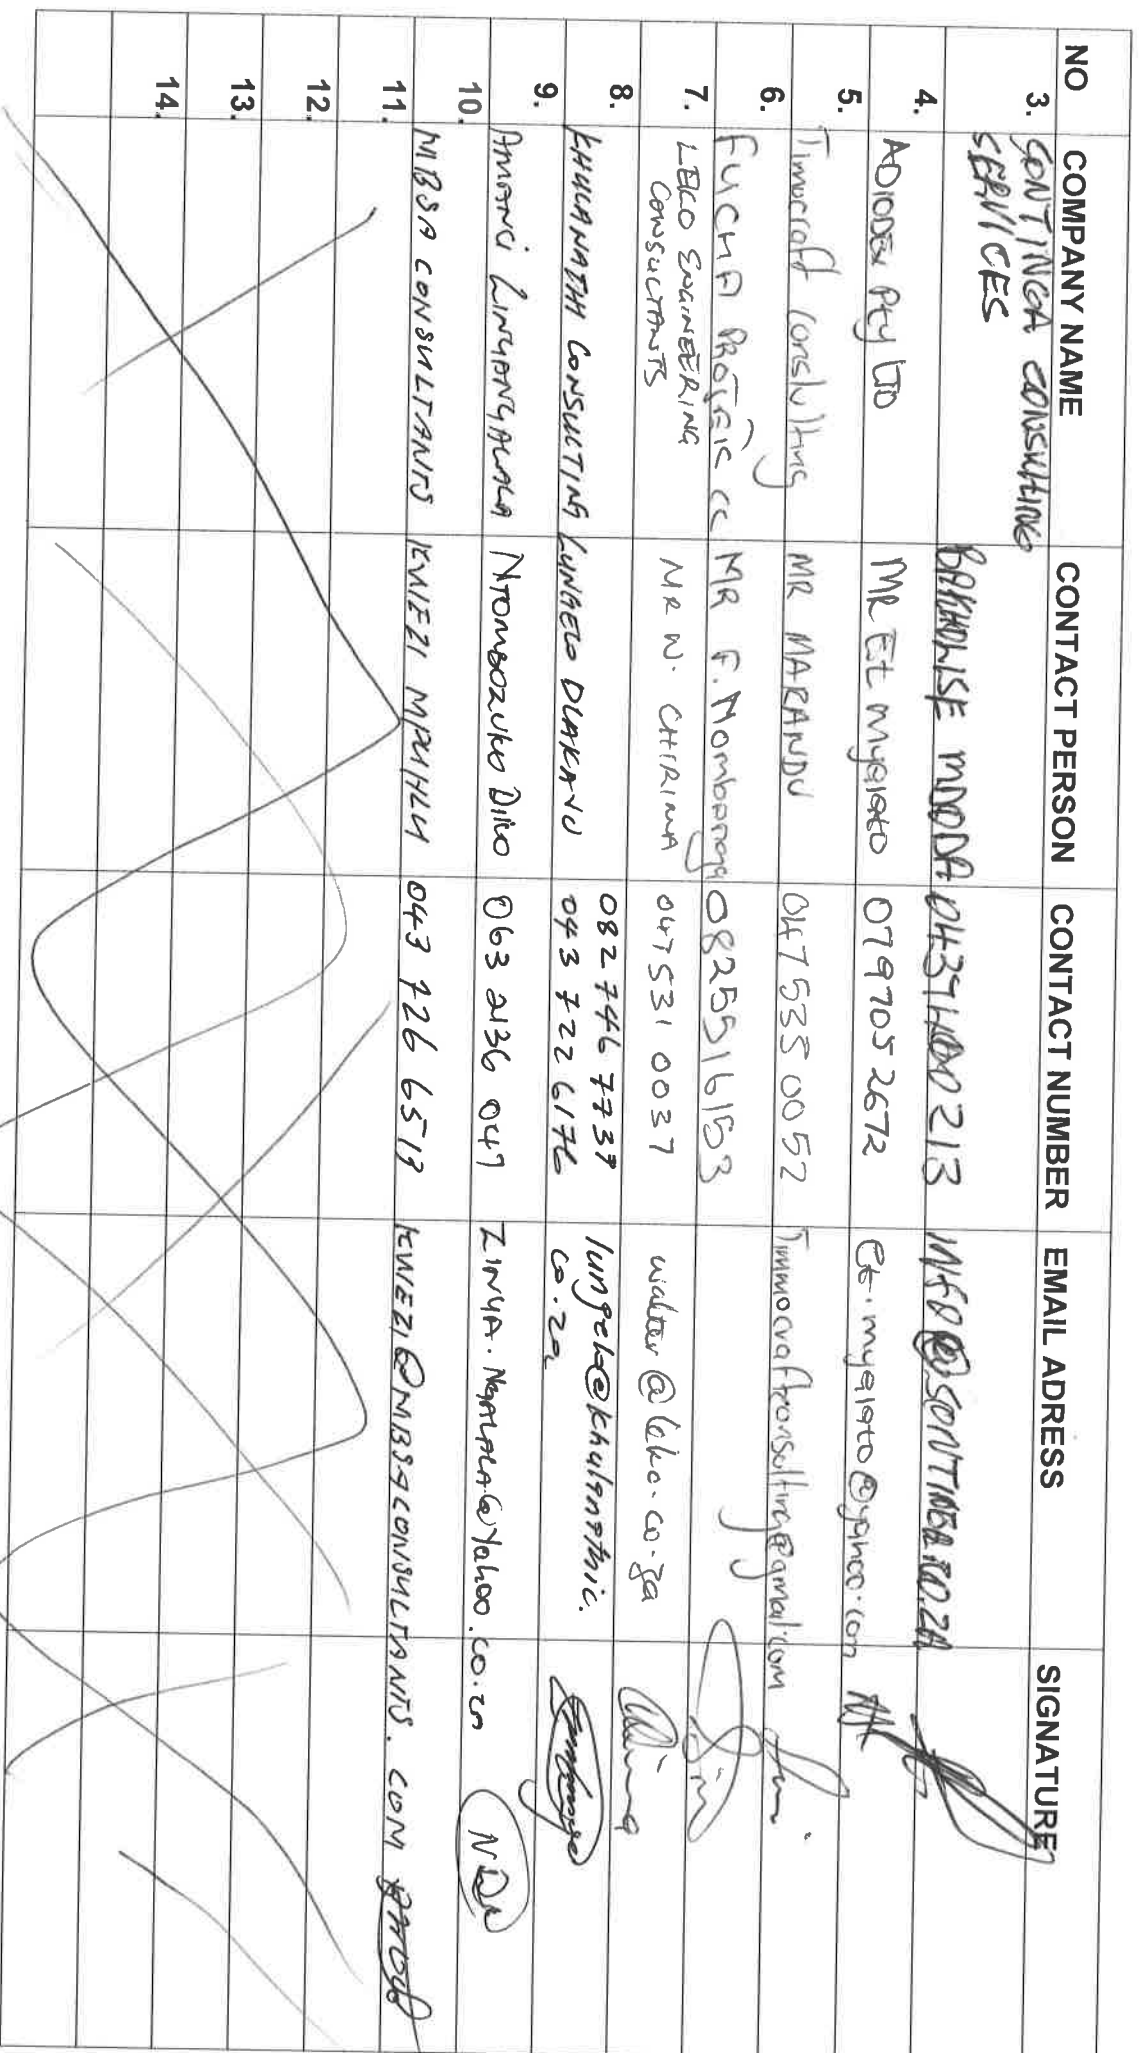 NO COMPANY NAME CONTACT PERSON CONTACT NUMBER EMAIL ADRESS SIGNATURE
3. CONTINGA CONSULTING
SERVICES
MDODA
4. ADIODEX Pty LTD MR Et Myalato 079705 2672 et.myalato@yahoo.com
5. Timocraft Conslulting MR MARANDU 047 535 0052 Timmocraftconsulting@gmail.com
6. FUCHA PROJECTS CC MR F. Mombanga 0825516153
7. LEKO ENGINEERING
CONSULTANTS MR W. CHIRIMA 047 531 0037 walter@leko.co.za
8. KHULANATHI CONSULTING LUNGELO DLAKAVU 082 746 7739
043 722 6176 lungelo@khulanathic.
co.za
9. AMANCI ZINYANGALALA NTOMBOZUKO DIKO 063 2136 047 ZINYA.NGALALA@Yahoo.co.za
10. MBSA CONSULTANTS KWEZI MPUHLU 043 726 6519 KWEZI@MBSACONSULTANTS.COM
11.
12.
13.
14.